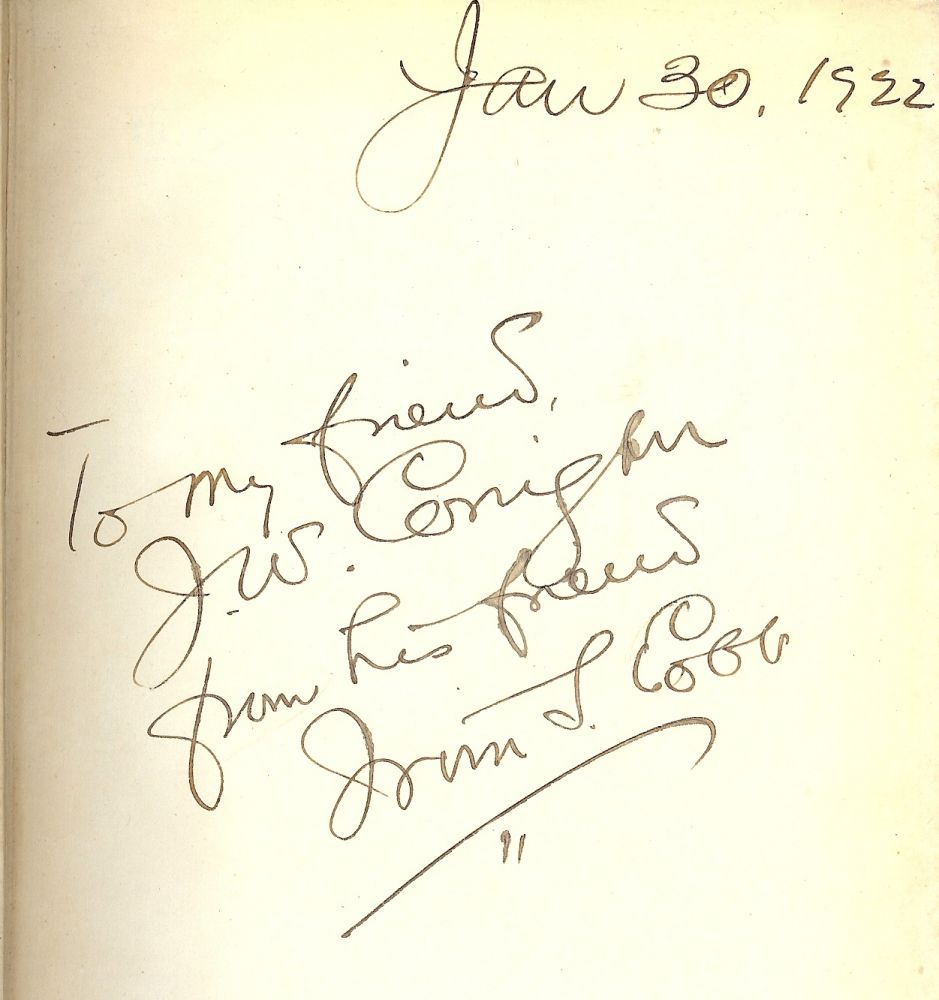 Jan 30, 1922
To my friend,
J.W. Corrigan
from his friend
Irvin S. Cobb
"